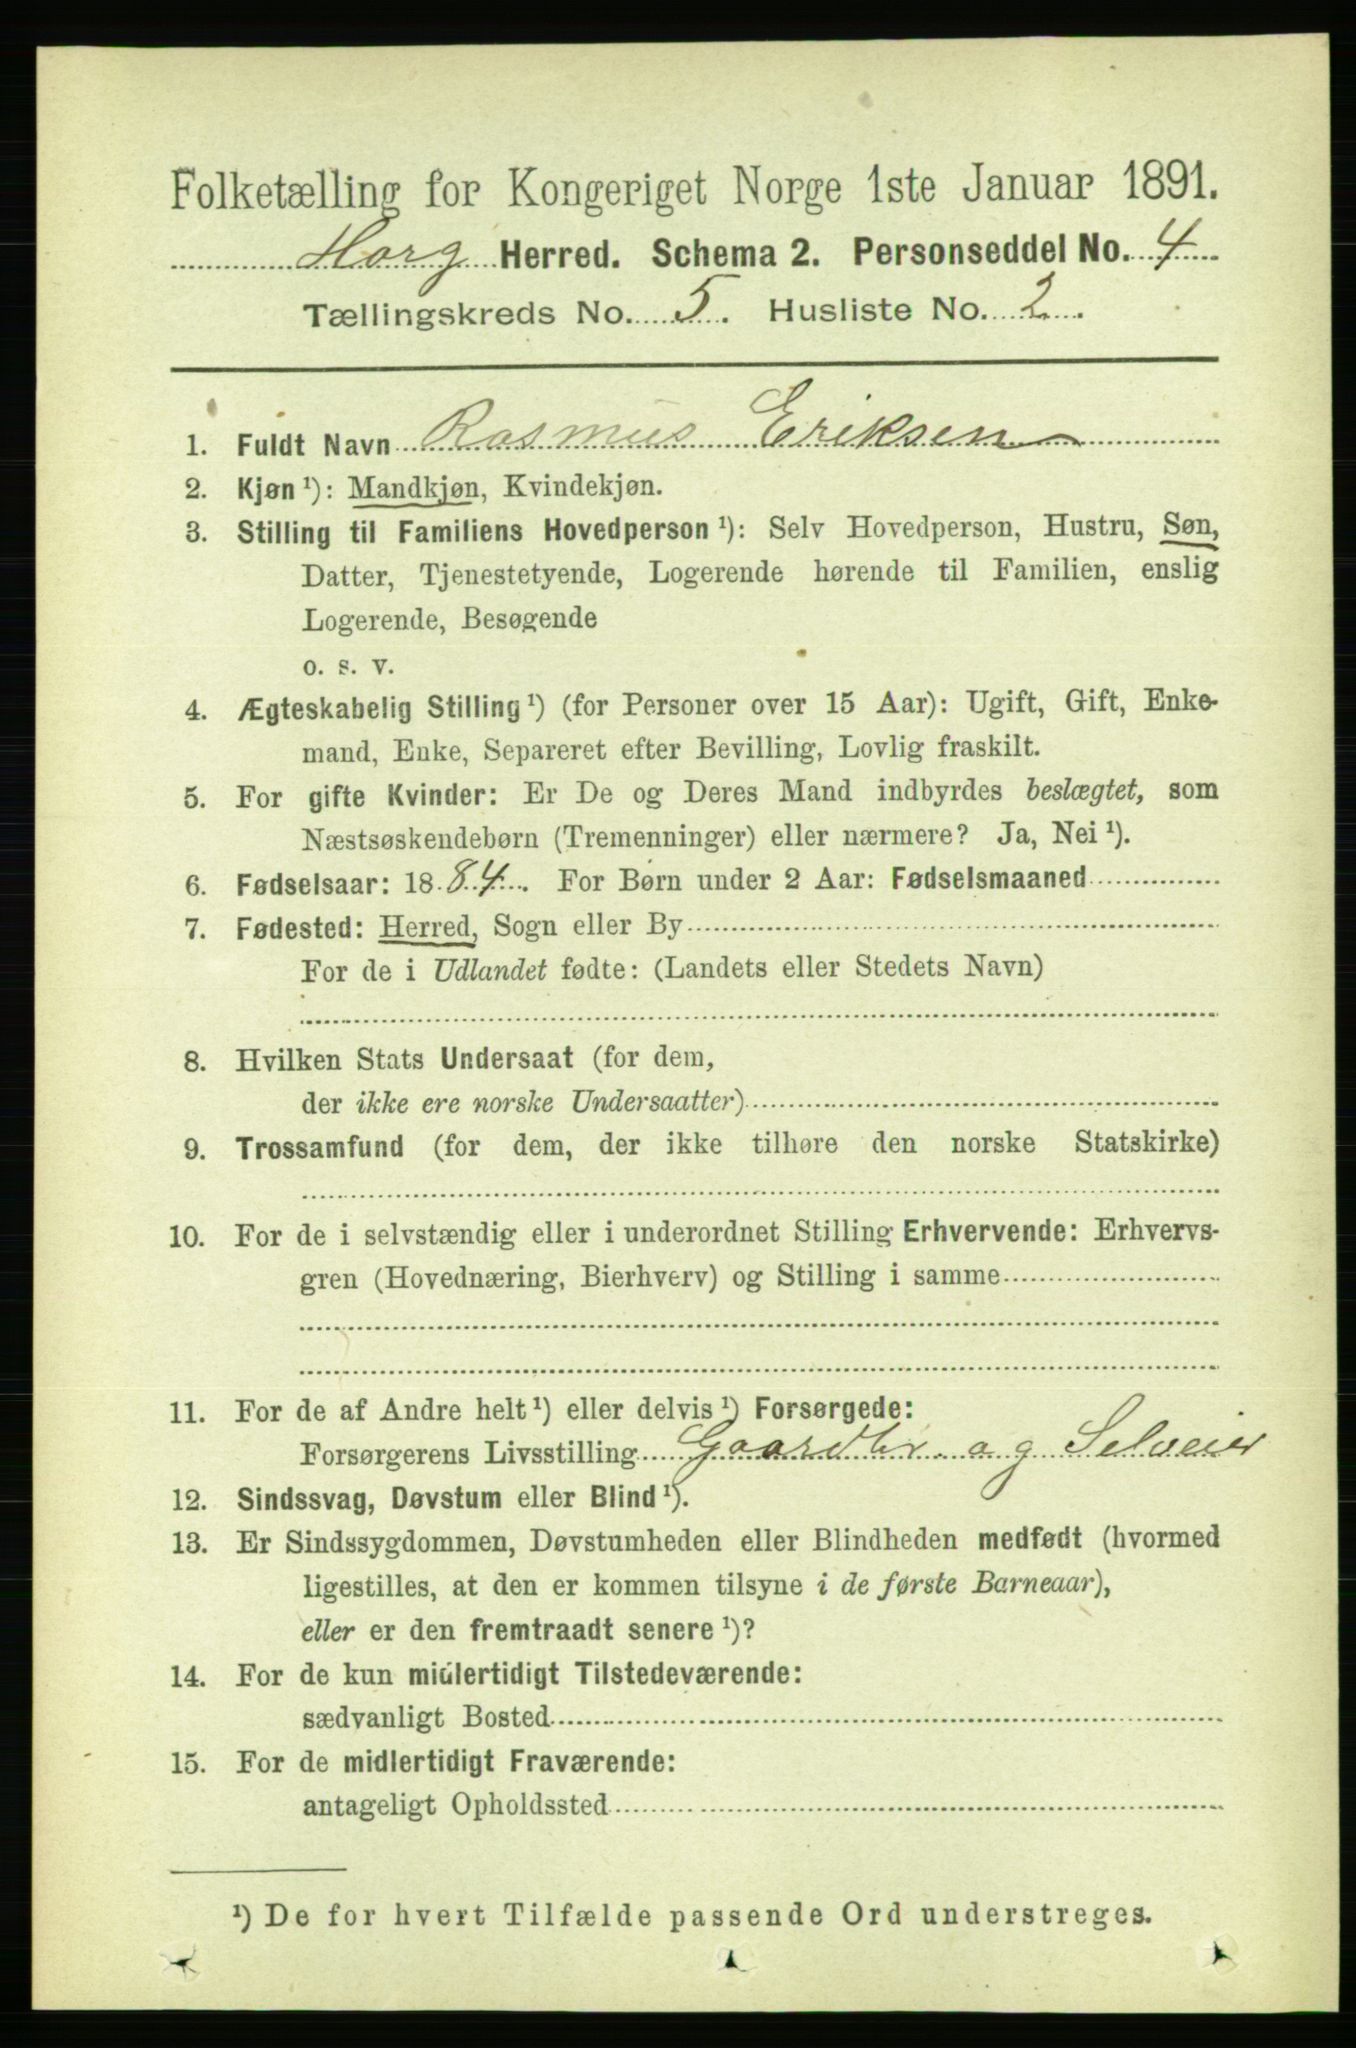 Folketælling for Kongeriget Norge 1ste Januar 1891.
Horg Herred. Schema 2. Personseddel No. 4
Tællingskreds No. 5. Husliste No. 2.
1. Fuldt Navn Rasmus Eriksen
2. Kjøn ¹): Mandkjøn, Kvindekjøn.
3. Stilling til Familiens Hovedperson ¹): Selv Hovedperson, Hustru, Søn,
Datter, Tjenestetyende, Logerende hørende til Familien, enslig
Logerende, Besøgende
o. s. v.
4. Ægteskabelig Stilling ¹) (for Personer over 15 Aar): Ugift, Gift, Enke-
mand, Enke, Separeret efter Bevilling, Lovlig fraskilt.
5. For gifte Kvinder: Er De og Deres Mand indbyrdes beslægtet, som
Næstsøskendebørn (Tremenninger) eller nærmere? Ja, Nei ¹).
6. Fødselsaar: 1884. For Børn under 2 Aar: Fødselsmaaned
7. Fødested: Herred, Sogn eller By
For de i Udlandet fødte: (Landets eller Stedets Navn)
8. Hvilken Stats Undersaat (for dem,
der ikke ere norske Undersaatter)
9. Trossamfund (for dem, der ikke tilhøre den norske Statskirke)
10. For de i selvstændig eller i underordnet Stilling Erhvervende: Erhvervs-
gren (Hovednæring, Bierhverv) og Stilling i samme
11. For de af Andre helt ¹) eller delvis ¹) Forsørgede:
Forsørgerens Livsstilling Gaardbr. og Selveier
12. Sindssvag, Døvstum eller Blind ¹).
13. Er Sindssygdommen, Døvstumheden eller Blindheden medfødt (hvormed
ligestilles, at den er kommen tilsyne i de første Barneaar),
eller er den fremtraadt senere ¹)?
14. For de kun midlertidigt Tilstedeværende:
sædvanligt Bosted
15. For de midlertidigt Fraværende:
antageligt Opholdssted
¹) De for hvert Tilfælde passende Ord understreges.